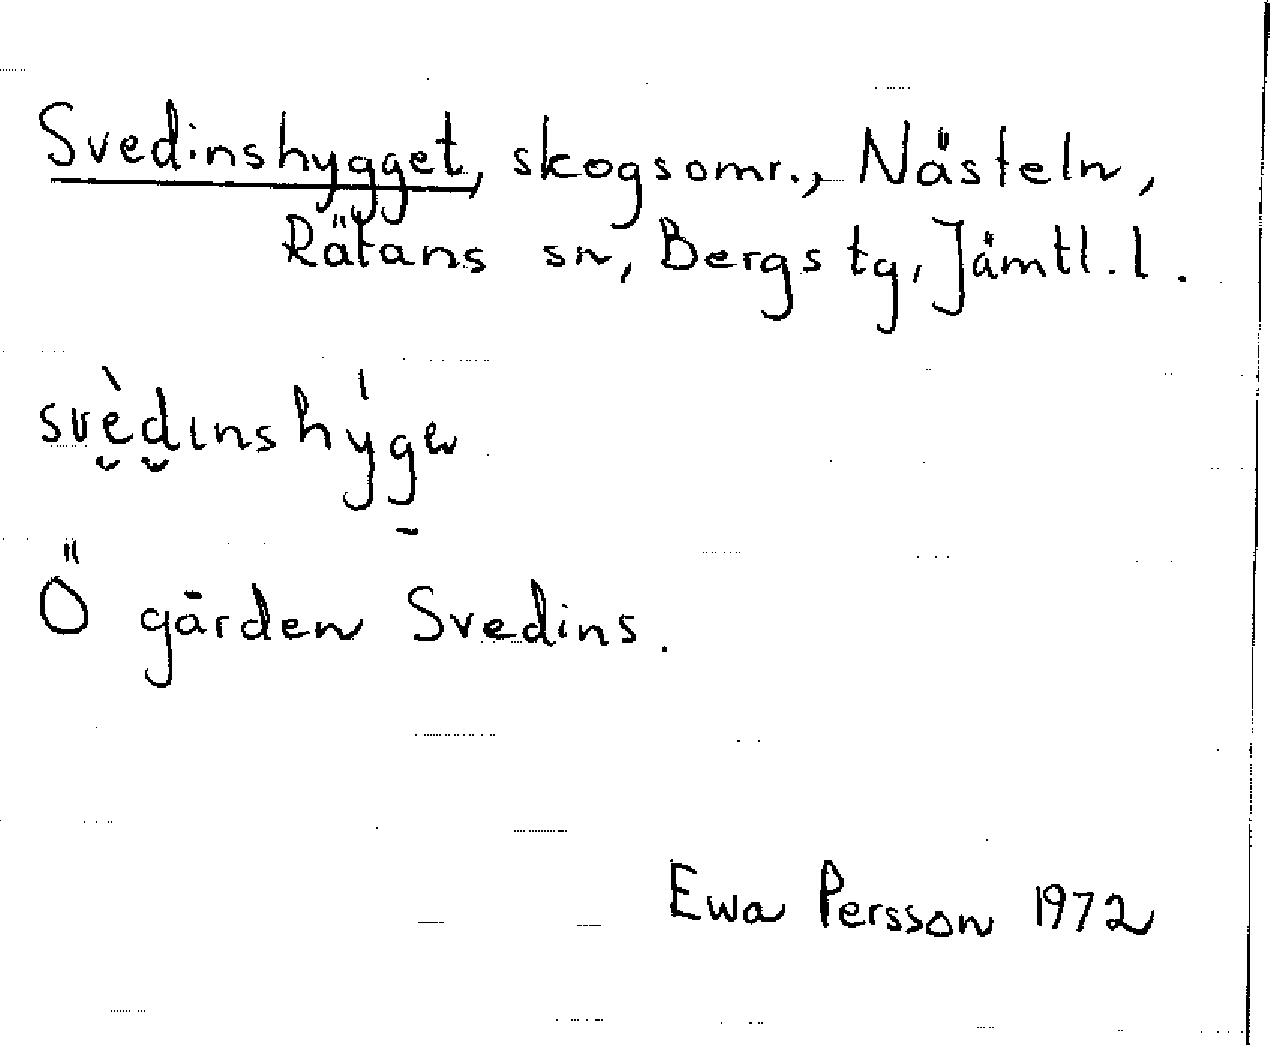 Svedinshygget, skogsomr., Nästeln,
Rätans sn, Bergs tg, Jämtl. l.
svèdınshýgeɯ
Ö gården Svedins.
Ewa Persson 1972